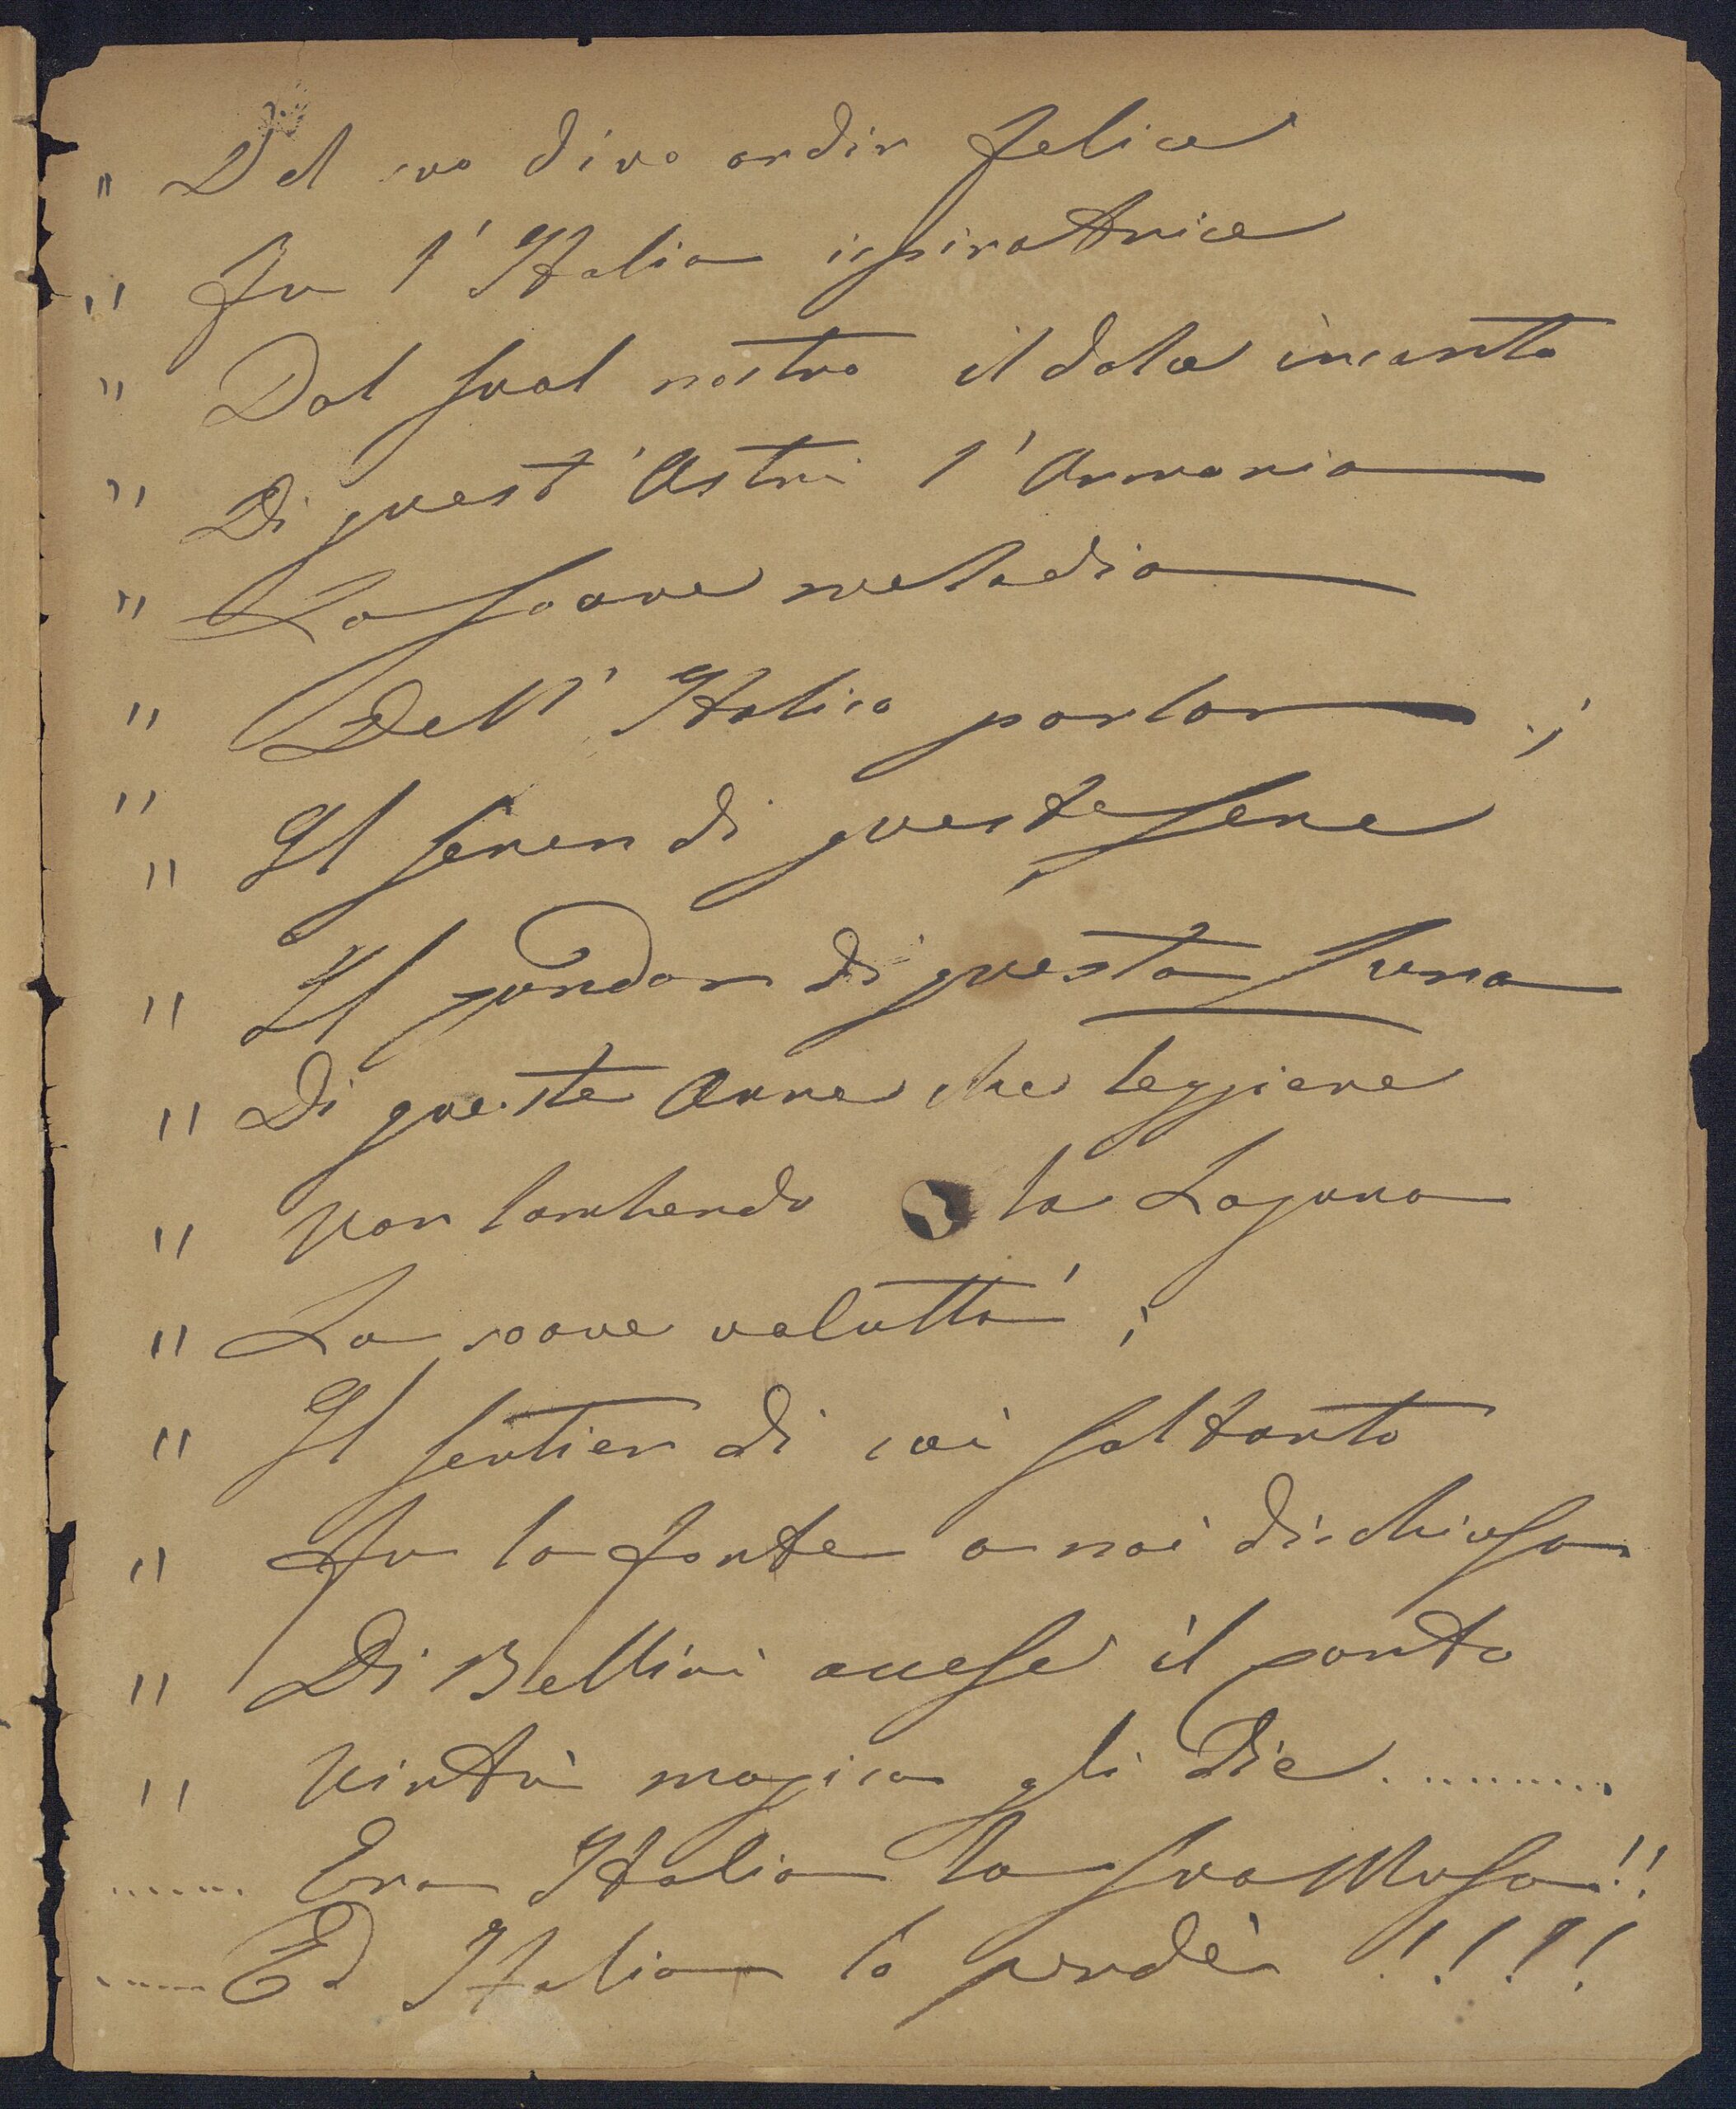 " Del suo divo ardir felice
" Fu l'Italia ispiratrice
" Dal suol nostro il dolce incanto
" Di quest'Astri l'Armonia
" La soave melodia
" Dell'Italico parlar ;
"
" Il seren di queste sere
" Il candor di questa Luna
" Di queste Aure che leggiere
" Van lambendo la Laguna
" La soave voluttà ;
" Il sentier di cui soltanto
" Fu la fonte a noi dischiusa
" Di Bellini accese il canto
" Virtù magica gli die ...........
...... Era Italia la sua Musa !!
...... Ed Italia lo perdè !!!!